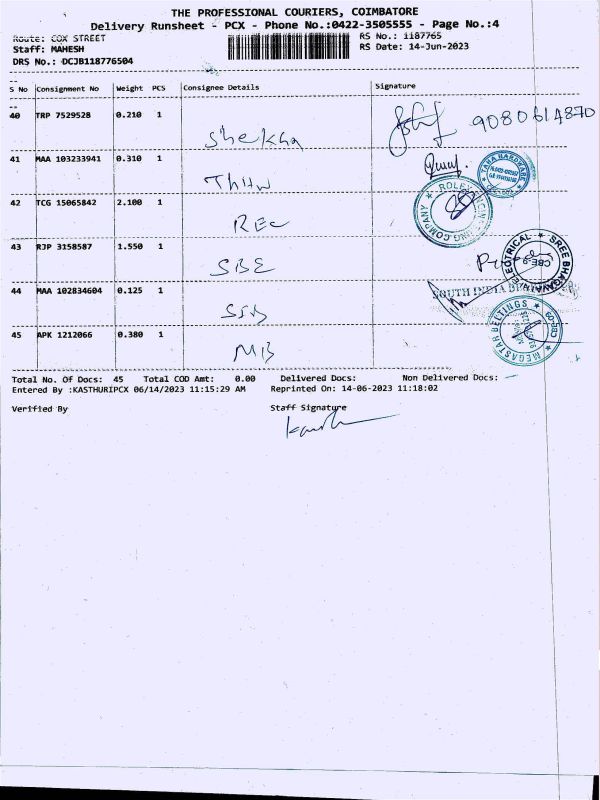 THE PROFESSIONAL COURIERS, COIMBATORE
Delivery Runsheet - PCX - Phone No.:0422-3505555 - Page No.:4
Route: COX STREET
RS No.: 1187765
Staff: MAHESH
RS Date: 14-Jun-2023
DRS No.: DCJB118776504
S No Consignment No Weight PCS Consignee Details Signature
40 TRP 7529528 0.210 1
Shekha 9080614870
41 MAA 103233941 0.310 1
THHW
TARA HARDWARE
42 TCG 15065842 2.100 1
REC
43 RJP 3158587 1.550 1
SBE
ELECTRICAL ★ SREE BHAGAVAN
CBE-9
44 MAA 102834604 0.125 1
SOUTH INDIA
SIB
45 APK 1212066 0.380 1
MB
★ MEGASTAR BELTINGS ★
Total No. Of Docs: 45 Total COD Amt: 0.00 Delivered Docs: Non Delivered Docs:
Entered By :KASTHURIPCX 06/14/2023 11:15:29 AM Reprinted On: 14-06-2023 11:18:02
Verified By Staff Signature